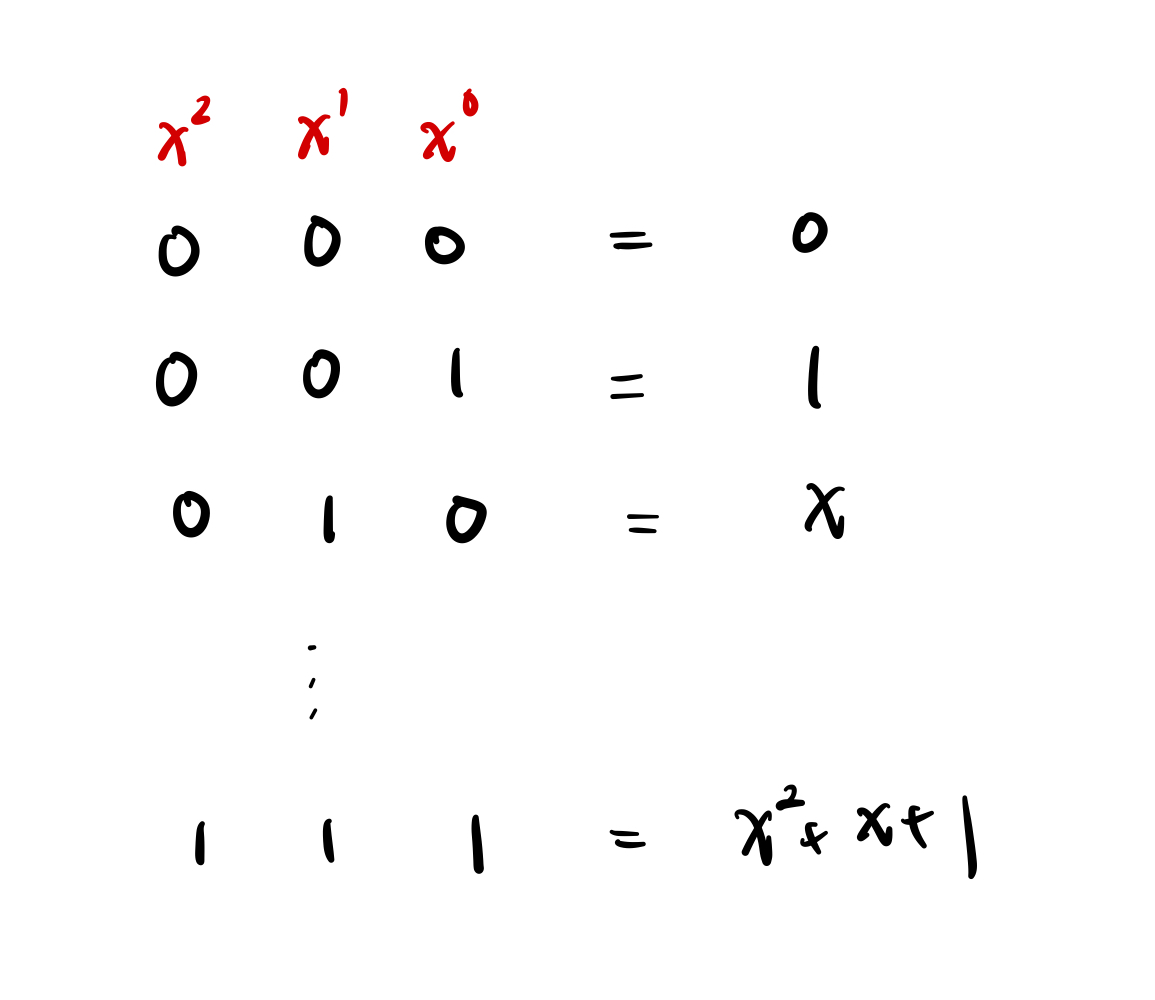 x² x¹ x⁰
0 0 0 = 0
0 0 1 = 1
0 1 0 = x
⋮
1 1 1 = x² + x + 1